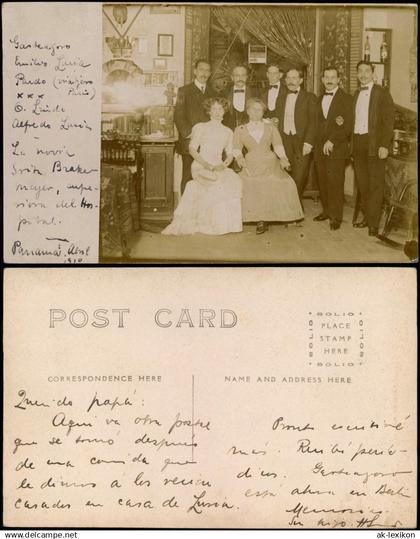 Gasteazoro
Emilio Luria
Pardo (viajero
París)
x x x
O. 
Alfredo Luria
La novia
Srita Brake-
mayer, supe-
riora del Hos-
pital.
Panamá, Abril
1910
POST CARD
SOLIO
SOLIO
PLACE
STAMP
HERE
SOLIO
SOLIO
CORRESPONDENCE HERE
NAME AND ADDRESS HERE
Querido papá:
Aquí va otra postal
que se tomó después
de una comida que
le dimos a los recién
casados en casa de Luria.
Pronto escribiré
más. Recibí perió-
dicos. Gasteazoro
está ahora en
Memorias.
Su hijo
www.ak-ansichtskarten.de
ak-lexikon